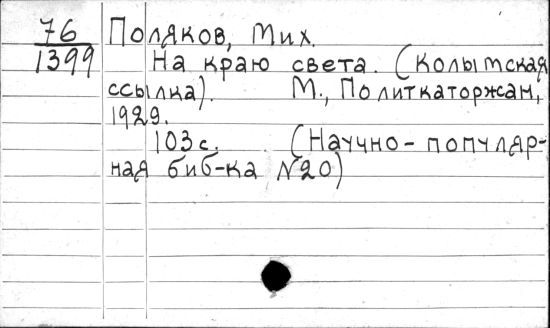 76 Поляков, Мих.
1399 На краю света. (Колымская
ссылка). М., Политкаторжан,
1929.
103 с. (Научно-популяр-
ная биб-ка №20)